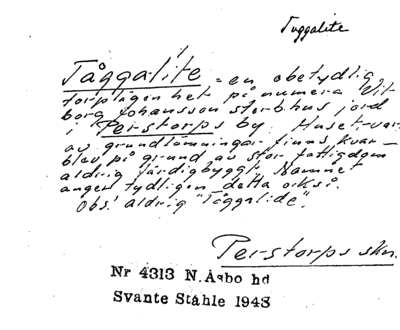 Tuggalite
Tåggalite = en obetydlig
torplägenhet på numera Vit
borg Johansson sterbhus jord
i Perstorps by. Huset, var
av grundlämningar finns kvar
blev på grund av stor fattigdom
aldrig färdigbyggt. Namnet
anger tydligen detta också.
Obs! aldrig "Tåggalide".
Perstorps skn.
Nr 4313 N.Åsbo hd
Svante Ståhle 1948